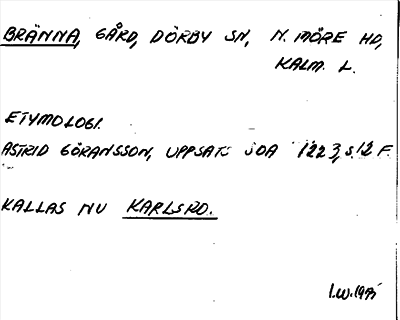 BRÄNNA, GÅRD, DÖRBY SN, N. MÖRE HD,
KALM. L.
ETYMOLOGI.
ASTRID GÖRANSSON, UPPSATS SOA 1223, S. 12 F.
KALLAS NU KARLSRO.
I.W. 1975